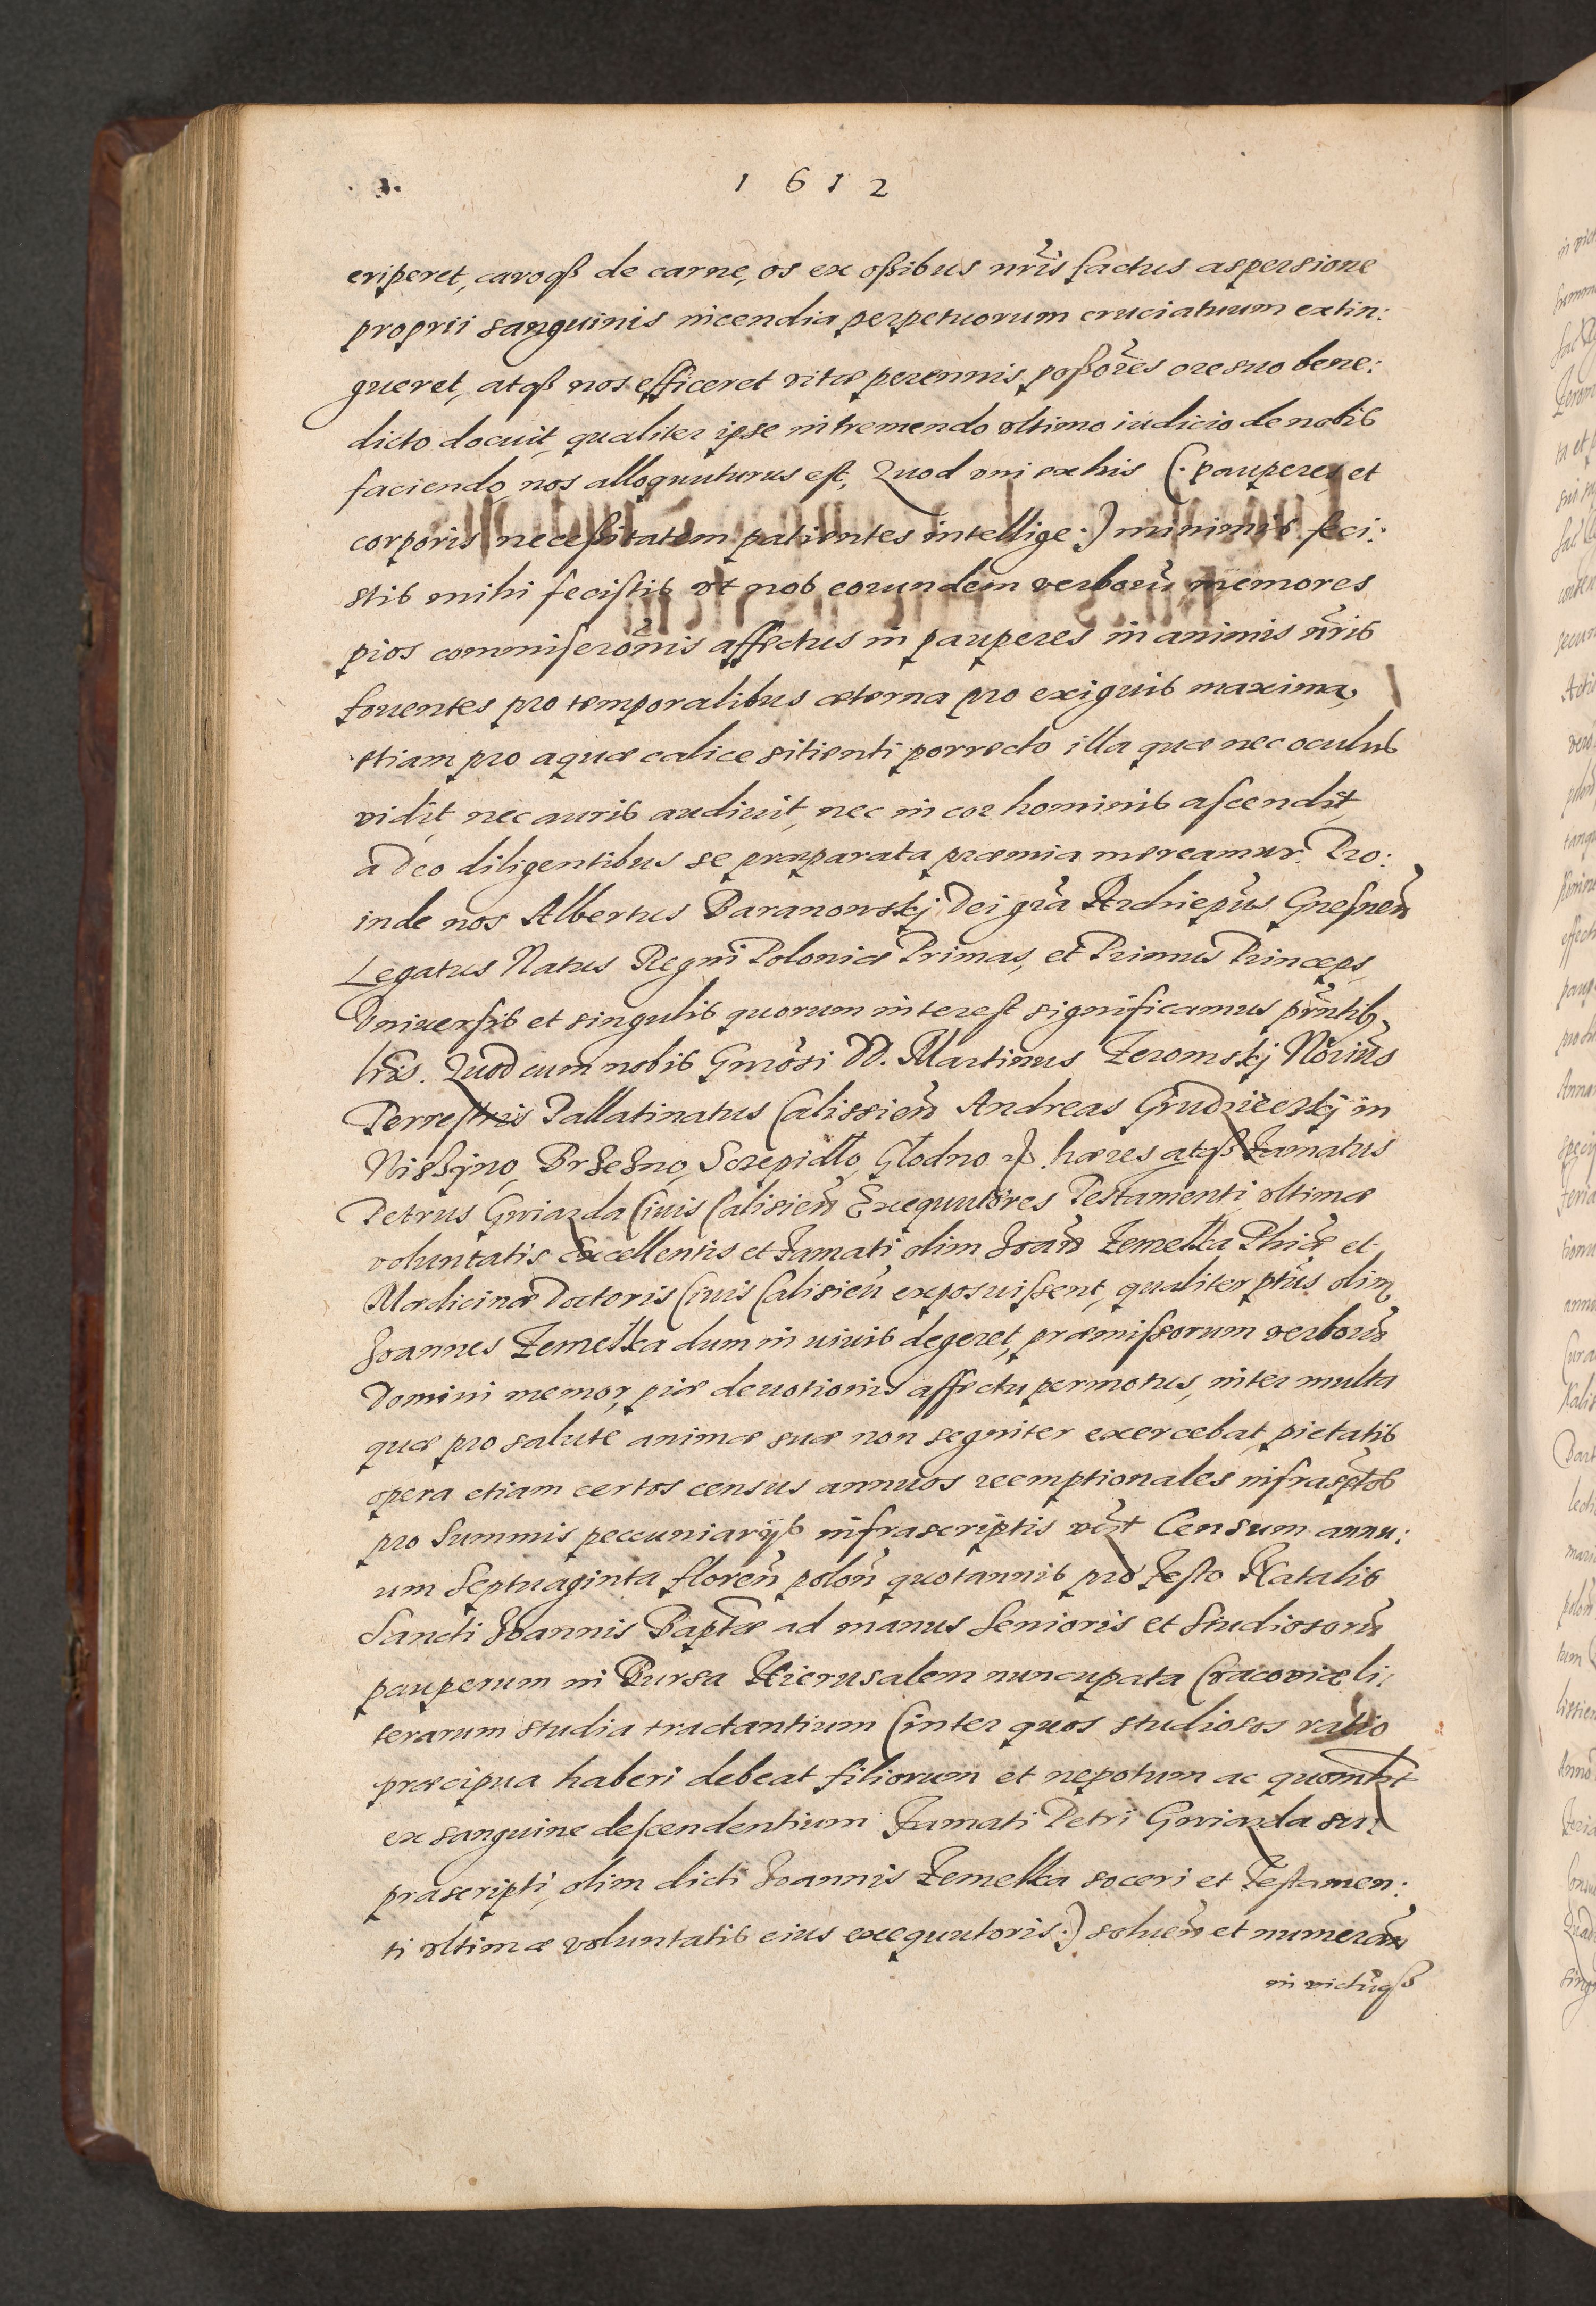 1 6 1 2
eriperet, caroqß de carne, os ex oßibus nr̃is factus aspersione
proprii sanguinis incendia perpetuorum cruciatuum extin:
gueret, atqß nos efficeret vitæ perennis poßor̃es ore suo bene:
dicto docuit, qualiter ipse in tremendo vltimo iudicio de nobis
faciendo, nos alloquuturus est, Quod vni ex his (. pauperes et
corporis necessitatem patientes intellige :) minimis feci:
stis mihi fecistis vt nos eorundem verborũ memores
pios commiserõnis affectus in pauperes in animis nr̃is
fouentes pro temporalibus æterna pro exiguis maxima,
etiam pro aquæ calice sitienti porrecto illa quæ nec oculus
vidit, nec auris audiuit, nec in cor hominis ascendit,
a Deo diligentibus se præparata præmia mereamur. Pro:
inde nos Albertus Baranowskj Dei grã Archiepũs Gnesneñ
Legatus Natus Regni Poloniæ Primas, et Primus Princeps,
Vniuersis et singulis quorum interest significamus pr̃ntib,
lr̃is. Quod cum nobis Gnrõsi DD. Martinus Zeromskj Nõrius
Terrestris Pallatinatus Calissieñ Andreas Grudzieckj in
Niszyno, Brzezno, Szczepidlo, Glodno hæres atqß Famatus
Petrus Gwiazda Ciuis Calisieñ Exequutõres Testamenti vltimæ
voluntatis Excellentis et Famati olim Joañ Zemelka Phiæ et
Mædicinæ Doctoris Ciuis Calisieñ exposuissent, qualiter ptũs olim
Joannes Zemelka dum in uiuis degeret, præmissorum verborũ
Domini memor, piæ deuotionis affectu permotus, inter multa
quæ pro salute animæ suæ non segniter exercebat, pietatis
opera etiam certos census annuos reemptionales infrasc̃ptos
pro Summis peccuniarijs infrascriptis vt̃ Censum annu:
um Septuaginta floreñ poloñ quotannis pro Festo Natalis
Sancti Joannis Baptæ ad manus Senioris et Studiosorũ
pauperum in Bursa Hierusalem nuncupata Cracoviæ li:
terarum studia tractantium (inter quos studiosos ratio
præcipua haberi debeat filiorum et nepotum ac quomlt̃
ex sanguine descendentium Famati Petri Gwiazda su:
prascripti, olim dicti Joannis Zemelka soceri et Testamen:
ti vltimæ voluntatis eius exequutoris :) soluen̄ et numerañ
in victũqß